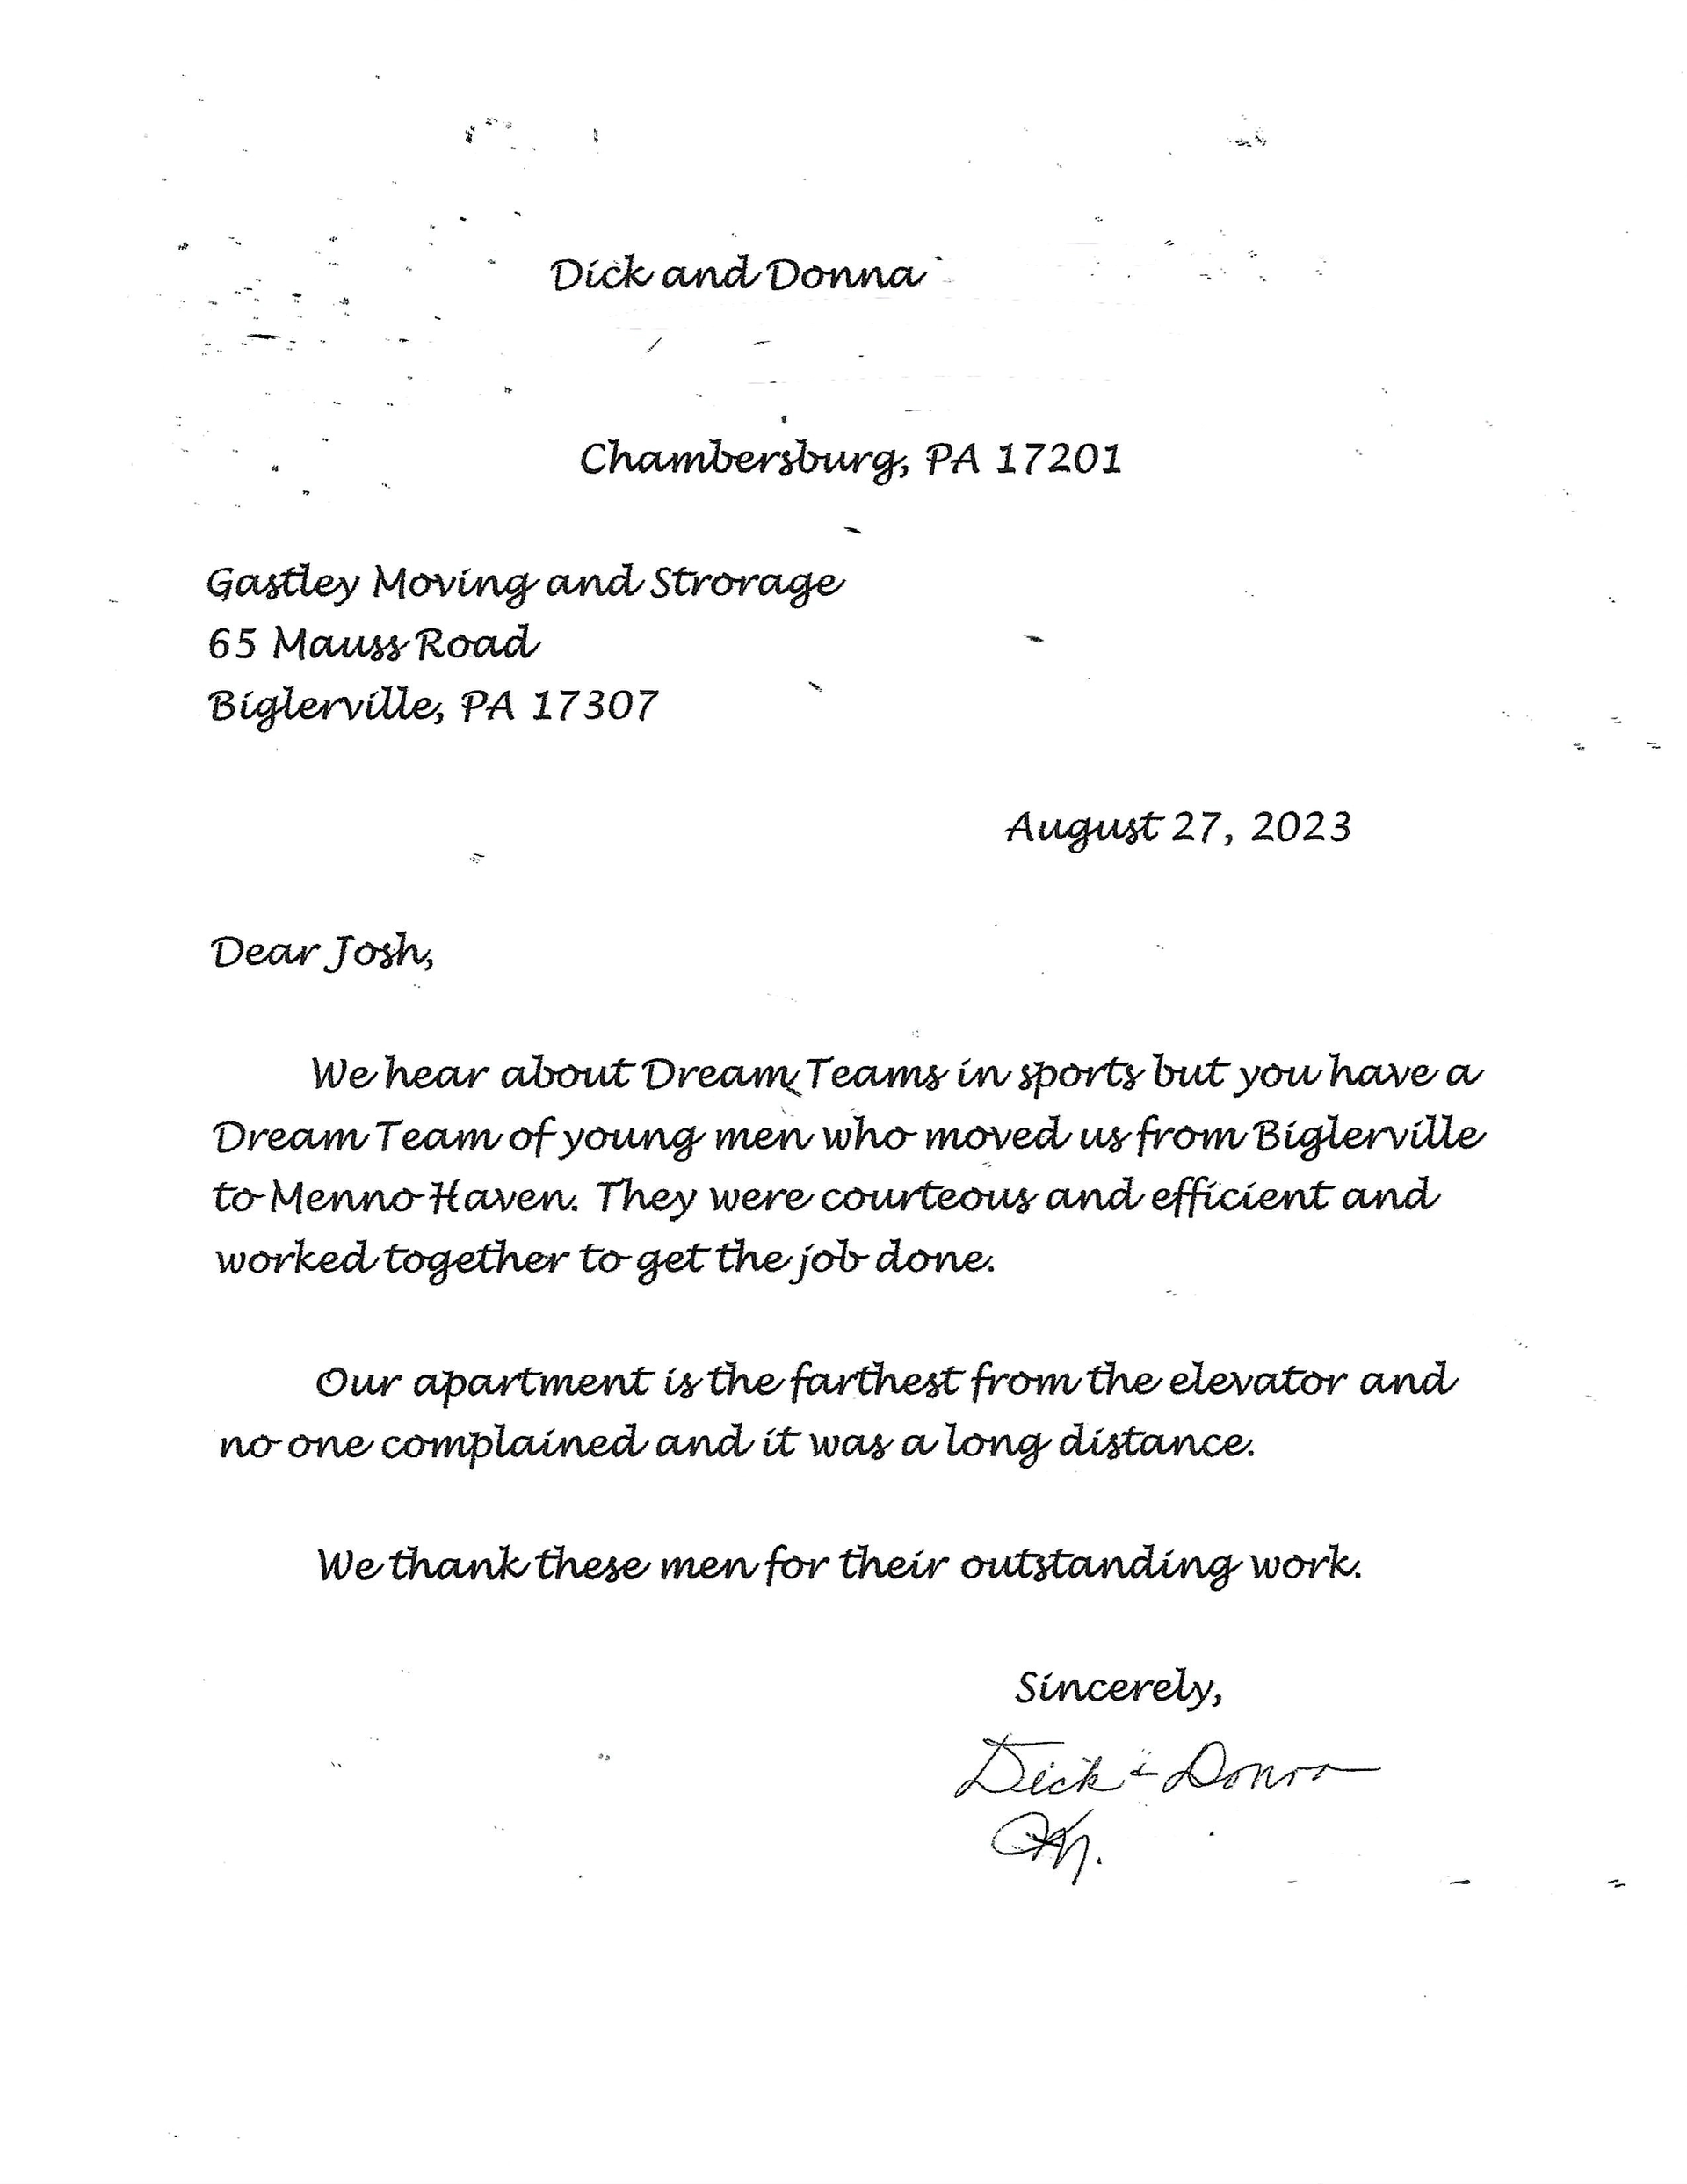 Dick and Donna
Chambersburg, PA 17201
Gastley Moving and Strorage
65 Mauss Road
Biglerville, PA 17307
August 27, 2023
Dear Josh,
We hear about Dream Teams in sports but you have a
Dream Team of young men who moved us from Biglerville
to Menno Haven. They were courteous and efficient and
worked together to get the job done.
Our apartment is the farthest from the elevator and
no one complained and it was a long distance.
We thank these men for their outstanding work.
Sincerely,
Dick & Donna